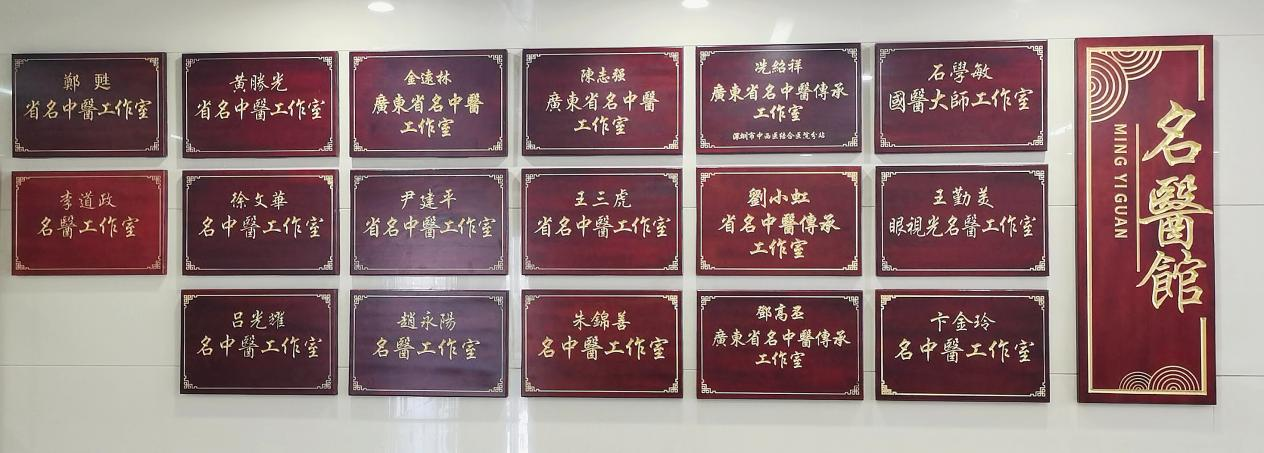 鄭甦
省名中醫工作室
黃勝光
省名中醫工作室
金遠林
廣東省名中醫
工作室
陳志强
廣東省名中醫
工作室
冼紹祥
廣東省名中醫傳承
工作室
深圳市中西医结合医院分站
石學敏
國醫大師工作室
李道政
名醫工作室
徐文華
名中醫工作室
尹建平
省名中醫工作室
王三虎
省名中醫工作室
劉小虹
省名中醫傳承
工作室
王勤美
眼視光名醫工作室
呂光耀
名中醫工作室
趙永陽
名醫工作室
朱錦善
名中醫工作室
鄧高丕
廣東省名中醫傳承
工作室
卞金玲
名中醫工作室
名醫館
MING YI GUAN